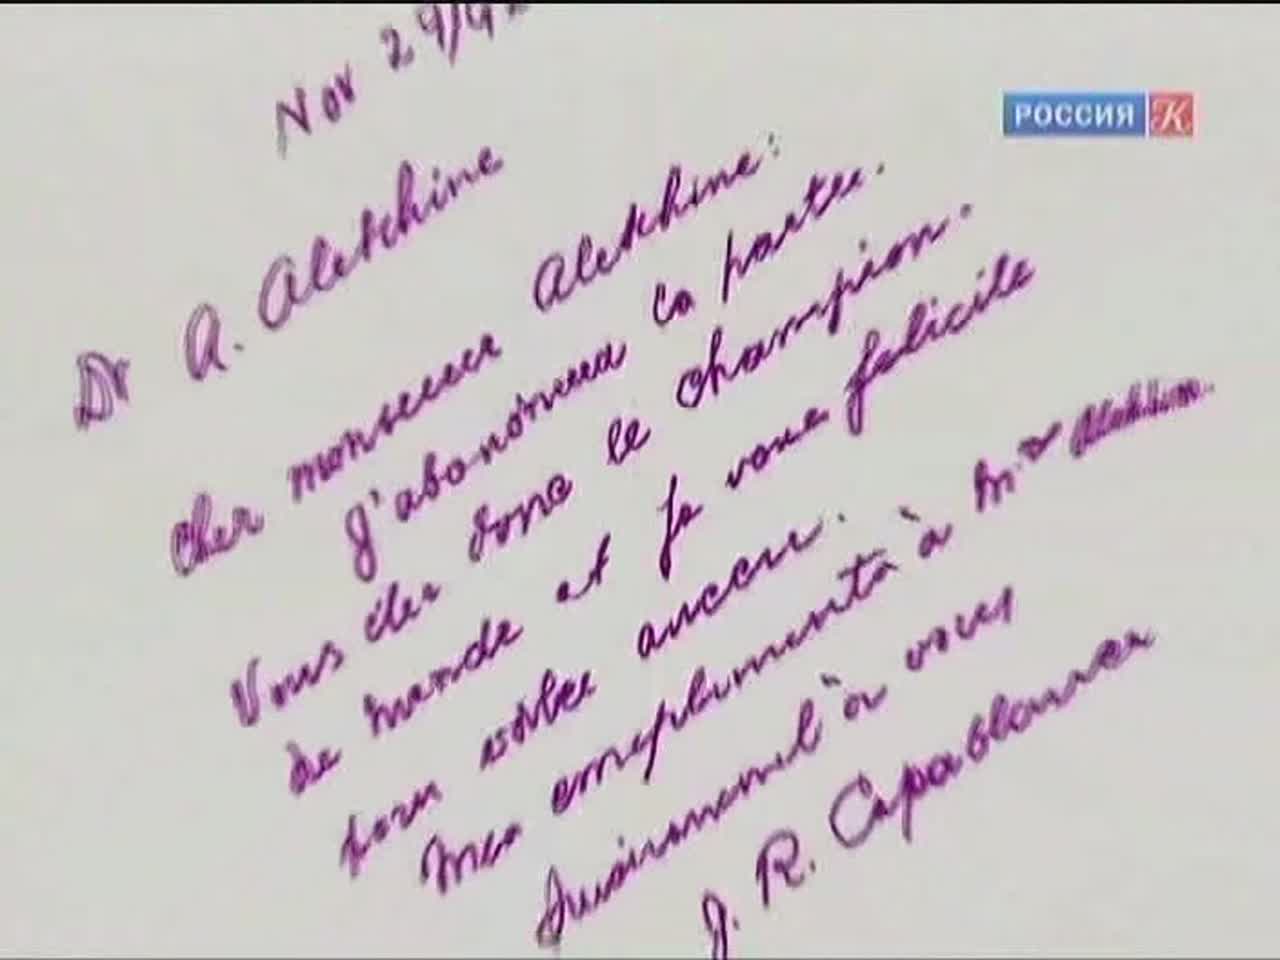 Nov 29/192
РОССИЯ К
Dr A. Alekhine
Cher monsieur Alekhine:
J'abandonne la partie.
Vous êtes donc le champion
de monde et je vous felicite
pour votre succes.
Mes compliments à Mme Alekhine.
Sincerement à vous
J. R. Capablanca